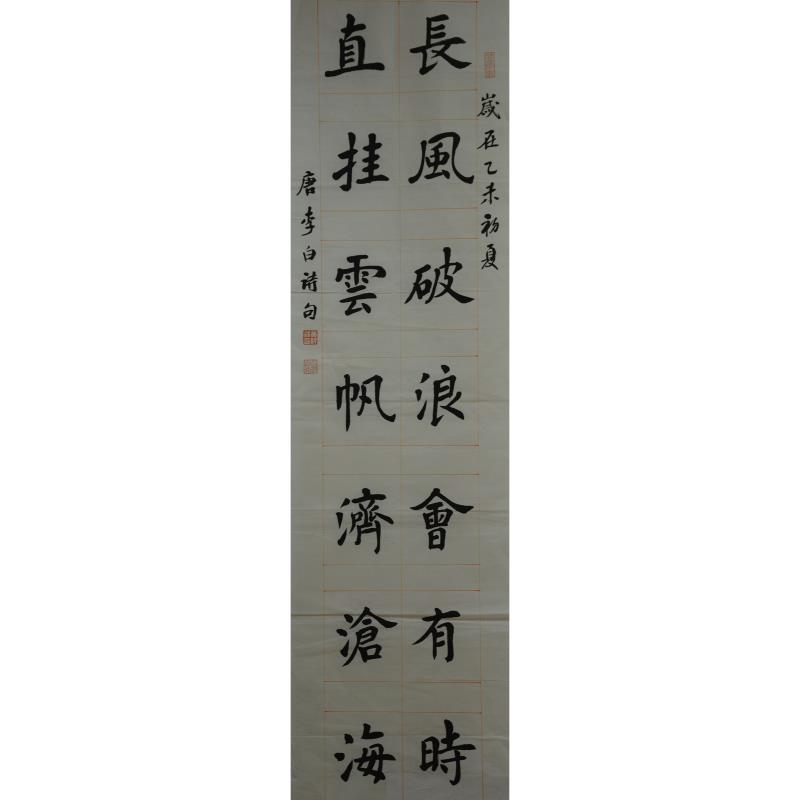 歲在乙未初夏
長風破浪會有時
直挂雲帆濟滄海
唐李白詩句